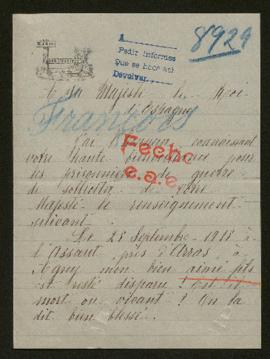 A
Pedir informes
Que se
Devolver
8929
A sa Majesté le Roi
d'Espagne
Français
J'ai l'honneur connaissant
votre haute bienveillance pour
les prisonniers de guerre
de solliciter de votre
Majesté le renseignement
suivant :
Fecho
e.a.e.
Le 25 Septembre 1915 à
l'assaut près d'Arras à
mon bien aimé fils
est resté disparu ! est-il
mort ou vivant ? On la
dit bien blessé.